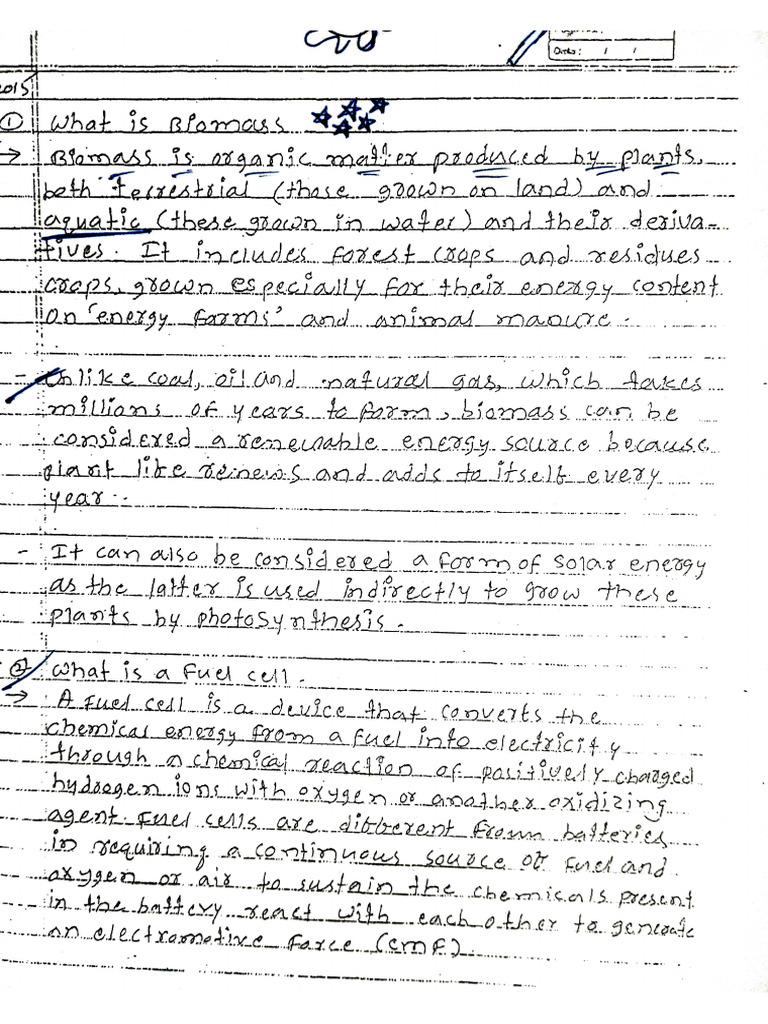 Date: / /
2015
① What is Biomass
→ Biomass is organic matter produced by plants,
both terrestrial (those grown on land) and
aquatic (these grown in water) and their deriva-
tives. It includes forest crops and residues
crops, grown especially for their energy content
on 'energy farms' and animal manure.
- Unlike coal, oil and natural gas, which takes
millions of years to form, biomass can be
considered a renewable energy source because
plant like renews and adds to itself every
year.
- It can also be considered a form of solar energy
as the latter is used indirectly to grow these
plants by photosynthesis.
② What is a fuel cell.
→ A fuel cell is a device that converts the
chemical energy from a fuel into electricity
through a chemical reaction of positively charged
hydrogen ions with oxygen or another oxidizing
agent. Fuel cells are different from batteries
in requiring a continuous source of fuel and
oxygen or air to sustain the chemicals present
in the battery react with each other to generate
an electromotive force (emf).